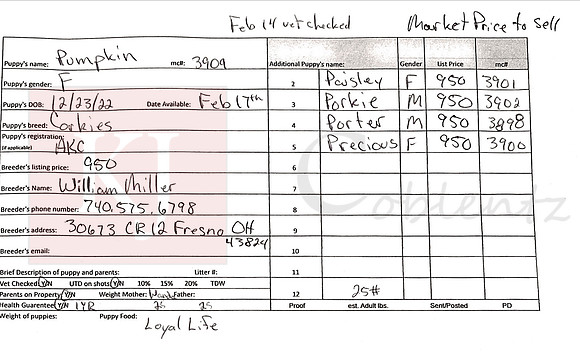 Feb 14 vet checked Market Price to sell
Puppy's name: Pumpkin mc#: 3909 Additional Puppy's name: Gender List Price mc#
Puppy's gender: F 2 Paisley F 950 3901
Puppy's DOB: 12/23/22 Date Available: Feb 17th 3 Porkie M 950 3902
Puppy's breed: Corkies 4 Porter M 950 3898
Puppy's registration: (if applicable) AKC 5 Precious F 950 3900
Breeder's listing price: 950 6
Breeder's Name: William Miller 7
Breeder's phone number: 740.575.6798 8
Breeder's address: 30673 CR 12 Fresno OH 43824 9
Breeder's email: 10
Brief Description of puppy and parents: Litter #: 11
Vet Checked Y/N UTD on shots Y/N 10% 15% 20% TDW
Parents on Property Y/N Weight Mother: Father: 12 25#
Health Guarentee Y/N 1YR 25 25 Proof est. Adult lbs. Sent/Posted PD
Weight of puppies: Puppy Food: Loyal Life
Coblentz